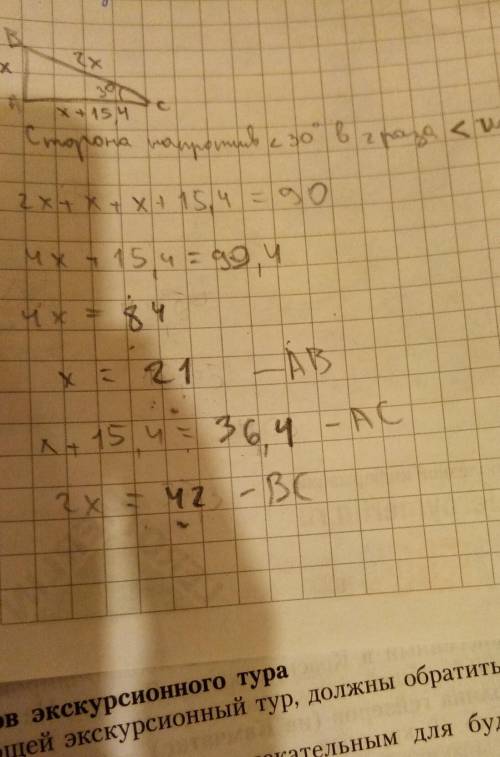 B
2x
x
30°
A
C
x+15,4
Сторона напротив <30° в 2 раза <
2x + x + x + 15,4 = 90
4x + 15,4 = 99,4
4x = 84
x = 21 - AB
x + 15,4 = 36,4 - AC
2x = 42 - BC
ов экскурсионного тура
ющей экскурсионный тур, должны обратить
кательным для буд